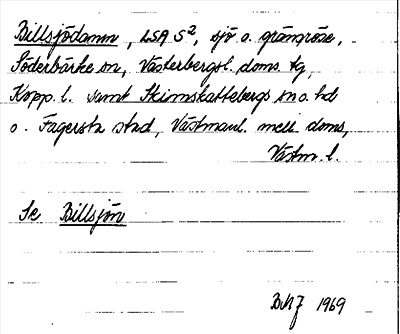 Billsjödamn, LSA S2, sjö o. gränsröse,
Söderbärke sn, Västerbergsl. doms tg,
Kopp. l. samt Skinnskattebergs sn o. hd
o. Fagersta stad, Västmanl. mell doms,
Västm. l.
Se Billsjön
1969